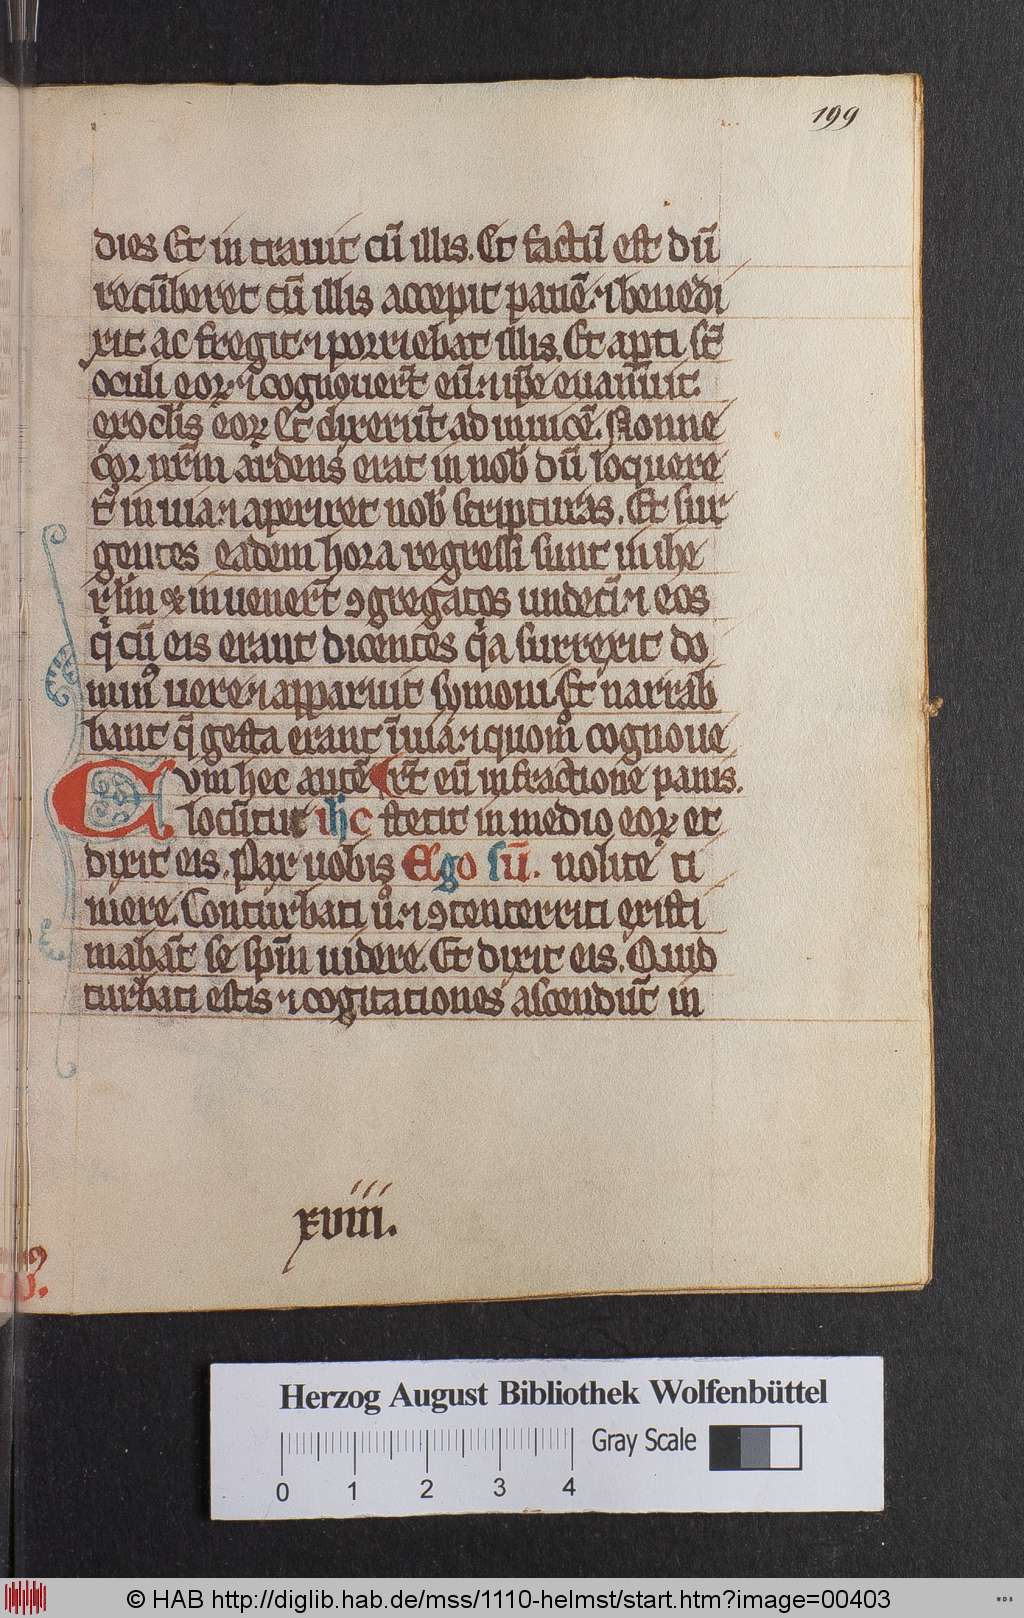 199
dies Et in trauit cū illis. Et factū est dū
recūberet cū illis accepit panē ⁊ benedi
xit ac fregit ⁊ porriebat illis. Et apti sūt
oculi eoꝝ ⁊ cognouert̄ eū ⁊ ip̄e euanuit
ex oclis eoꝝ Et dixerūt ad inuicē. Nonne
cor nr̄m ardens erat in nob dū loquere
t in uia ⁊ aperiret nob scripturas. Et sur
gentes eadem hora regressi sunt in ihe
rl̄m ⁊ inuenert̄ ꝯgregatos undeci ⁊ eos
q cū eis erant dicentes qa surrexit do
minꝰ uere ⁊ apparuit symoni Et narrab
bant q gesta erant ī uia ⁊ quom̄ cognoue
Cvm hec autē rt̄ eū in fractione panis.
locūtut ihc stetit in medio eoꝝ et
dixit eis. Pax uobis Ego sū. nolite ti
mere. Conturbati u̇ ⁊ ꝯtenterriti existi
mabāt se spm̄ uidere. Et dixit eis. Quid
turbati estis ⁊ cogitationes ascendūt in
xviii.
Herzog August Bibliothek Wolfenbüttel
Gray Scale
0 1 2 3 4
© HAB http://diglib.hab.de/mss/1110-helmst/start.htm?image=00403